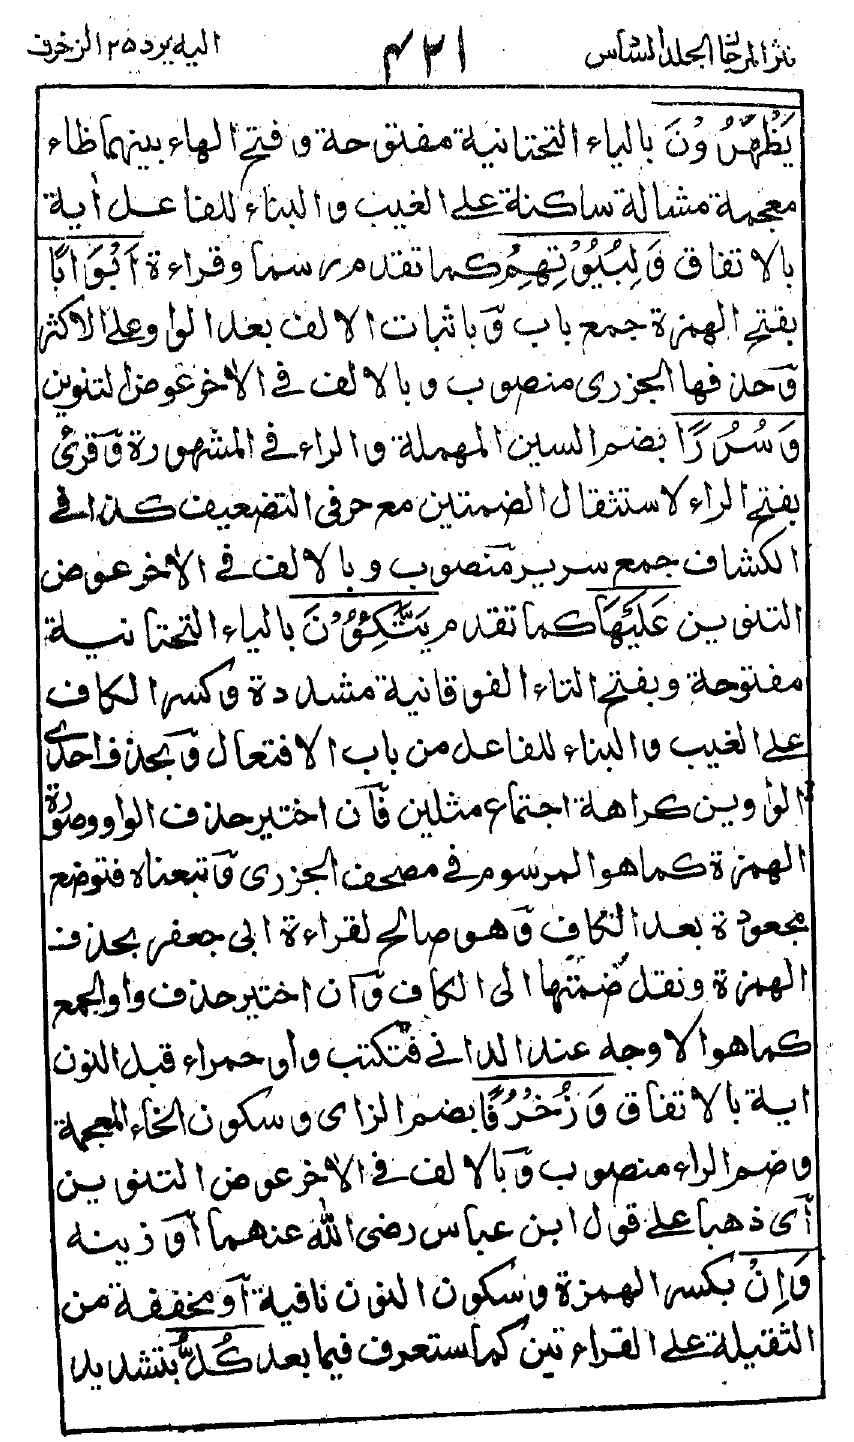 نثر المرجان الجلد السادس ۴۲۱ اليه يرد ۲۵ الزخرف
يَظْهَرُوْنَ بالياء التحتانية مفتوحة وفتح الهاء بينهما ظاء
معجمة مشالة ساكنة على الغيب والبناء للفاعل أية
بالاتفاق وَلِبُيُوْتِهِمْ كما تقدم رسما وقراءة اَبْوَابًا
بفتح الهمزة جمع باب وباثبات الالف بعد الواو على الاكثر
وحذفها الجزرى منصوب وبالالف فى الاخر عوض التنوين
وَسُرُرًا بضم السين المهملة والراء فى المشهورة وقرئ
بفتح الراء لاستثقال الضمتين مع حرفى التضعيف كذا فى
الكشاف جمع سرير منصوب وبالالف فى الاخر عوض
التنوين عَلَيْهَا كما تقدم يَتَّكِئُوْنَ بالياء التحتانية
مفتوحة وبفتح التاء الفوقانية مشددة وكسر الكاف
على الغيب والبناء للفاعل من باب الافتعال وبحذف احدى
الواوين كراهة اجتماع مثلين فان اختير حذف الواو وصورة
الهمزة كما هو المرسوم فى مصحف الجزرى واتبعناه فتوضع
مجعودة بعد الكاف وهو صالح لقراءة ابى جعفر بحذف
الهمزة ونقل ضمتها الى الكاف وان اختير حذف واو الجمع
كما هو الاوجه عند الدانى فتكتب واو حمراء قبل النون
اية بالاتفاق وَزُخْرُفًا بضم الزاى وسكون الخاء المعجمة
وضم الراء منصوب وبالالف فى الاخر عوض التنوين
أى ذهبا على قول ابن عباس رضى الله عنهما أو زينه
وَاِنْ بكسر الهمزة وسكون النون نافية أو مخففة من
الثقيلة على القراءتين كما ستعرف فيما بعد كُلُّ بتشديد